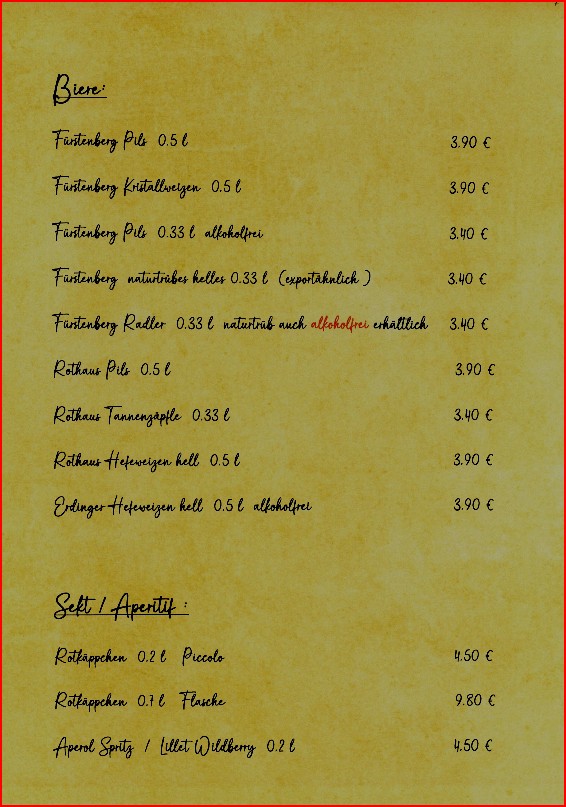 Biere:
Fürstenberg Pils 0.5 l 3.90 €
Fürstenberg Kristallweizen 0.5 l 3.90 €
Fürstenberg Pils 0.33 l alkoholfrei 3.40 €
Fürstenberg naturtrübes helles 0.33 l (exportähnlich ) 3.40 €
Fürstenberg Radler 0.33 l naturtrüb auch alkoholfrei erhältlich 3.40 €
Rothaus Pils 0.5 l 3.90 €
Rothaus Tannenzäpfle 0.33 l 3.40 €
Rothaus Hefeweizen hell 0.5 l 3.90 €
Erdinger Hefeweizen hell 0.5 l alkoholfrei 3.90 €
Sekt / Aperitif :
Rotkäppchen 0.2 l Piccolo 4.50 €
Rotkäppchen 0.7 l Flasche 9.80 €
Aperol Spritz / Lillet Wildberry 0.2 l 4.50 €